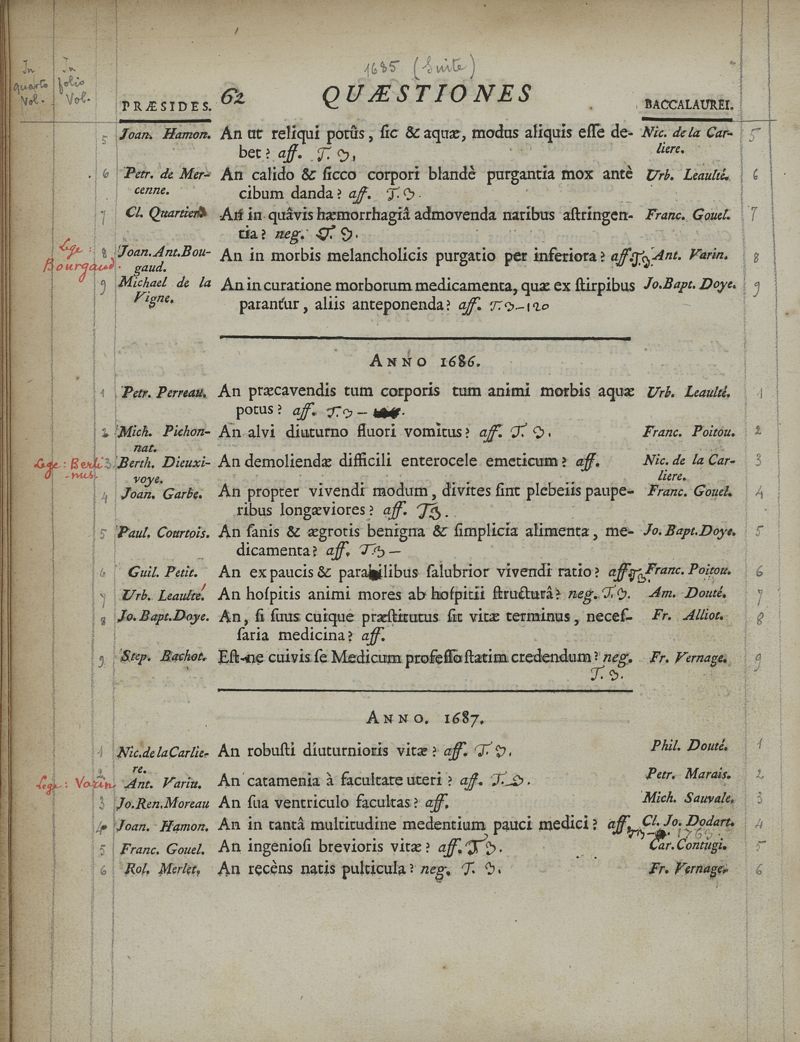 1685 (Suite)
In quarto Vol. In folio Vol.
PRÆSIDES. 62 QUÆSTIONES BACCALAUREI.
5 Joan. Hamon. An ut reliqui potûs, ſic & aquæ, modus aliquis eſſe de- Nic. de la Car- 5
bet? aff. T. liere.
6 Petr. de Mer- An calido & ſicco corpori blandè purgantia mox antè Urb. Leaulté. 6
cenne. cibum danda? aff. T.
7 Cl. Quartier An in quâvis hæmorrhagiâ admovenda naribus aſtringen- Franc. Gouel. 7
tia? neg. T.
Lege: 8 Joan. Ant. Bou- An in morbis melancholicis purgatio per inferiora? aff. Ant. Varin. 8
Bourgaud. gaud.
9 Michael de la An in curatione morborum medicamenta, quæ ex ſtirpibus Jo. Bapt. Doye. 9
Vigne. parantur, aliis anteponenda? aff. T.
ANNO 1686.
1 Petr. Perreau. An præcavendis tum corporis tum animi morbis aquæ Urb. Leaulté. 1
potus? aff. T.
2 Mich. Pichon- An alvi diuturno fluori vomitus? aff. T. Franc. Poitou. 2
nat.
Lege: Berti- 3 Berth. Dieuxi- An demoliendæ difficili enterocele emeticum? aff. Nic. de la Car- 3
nus voye. liere.
4 Joan. Garbe. An propter vivendi modum, divites ſint plebeiis paupe- Franc. Gouel. 4
ribus longæviores? aff. T.
5 Paul. Courtois. An ſanis & ægrotis benigna & ſimplicia alimenta, me- Jo. Bapt. Doye. 5
dicamenta? aff. T.
6 Guil. Petit. An ex paucis & parabilibus ſalubrior vivendi ratio? aff. Franc. Poitou. 6
7 Urb. Leaulte. An hoſpitis animi mores ab hoſpitii ſtructurâ? neg. T. Am. Douté. 7
8 Jo. Bapt. Doye. An, ſi ſuus cuique præſtitutus ſit vitæ terminus, neceſ- Fr. Alliot. 8
ſaria medicina? aff.
9 Step. Bachot. Eſt-ne cuivis ſe Medicum profeſſo ſtatim credendum? neg. Fr. Vernage. 9
T.
ANNO. 1687.
1 Nic. de la Carlie- An robuſti diuturnioris vitæ? aff. T. Phil. Douté. 1
re.
Lege: Varin 2 Ant. Variu. An catamenia à facultate uteri? aff. T. Petr. Marais. 2
3 Jo. Ren. Moreau An ſua ventriculo facultas? aff. Mich. Sauvale. 3
4 Joan. Hamon. An in tantâ multitudine medentium pauci medici? aff. Cl. Jo. Dodart. 4
5 Franc. Gouel. An ingenioſi brevioris vitæ? aff. T. Car. Contugi. 5
6 Rol. Merlet. An recèns natis pulticula? neg. T. Fr. Vernage. 6